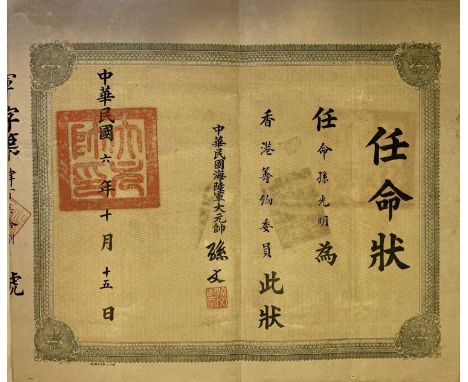 任命狀
任命孫光明為
香港籌餉委員此狀
中華民國海陸軍大元帥 孫文
中華民國六年十月十五日
字第 號